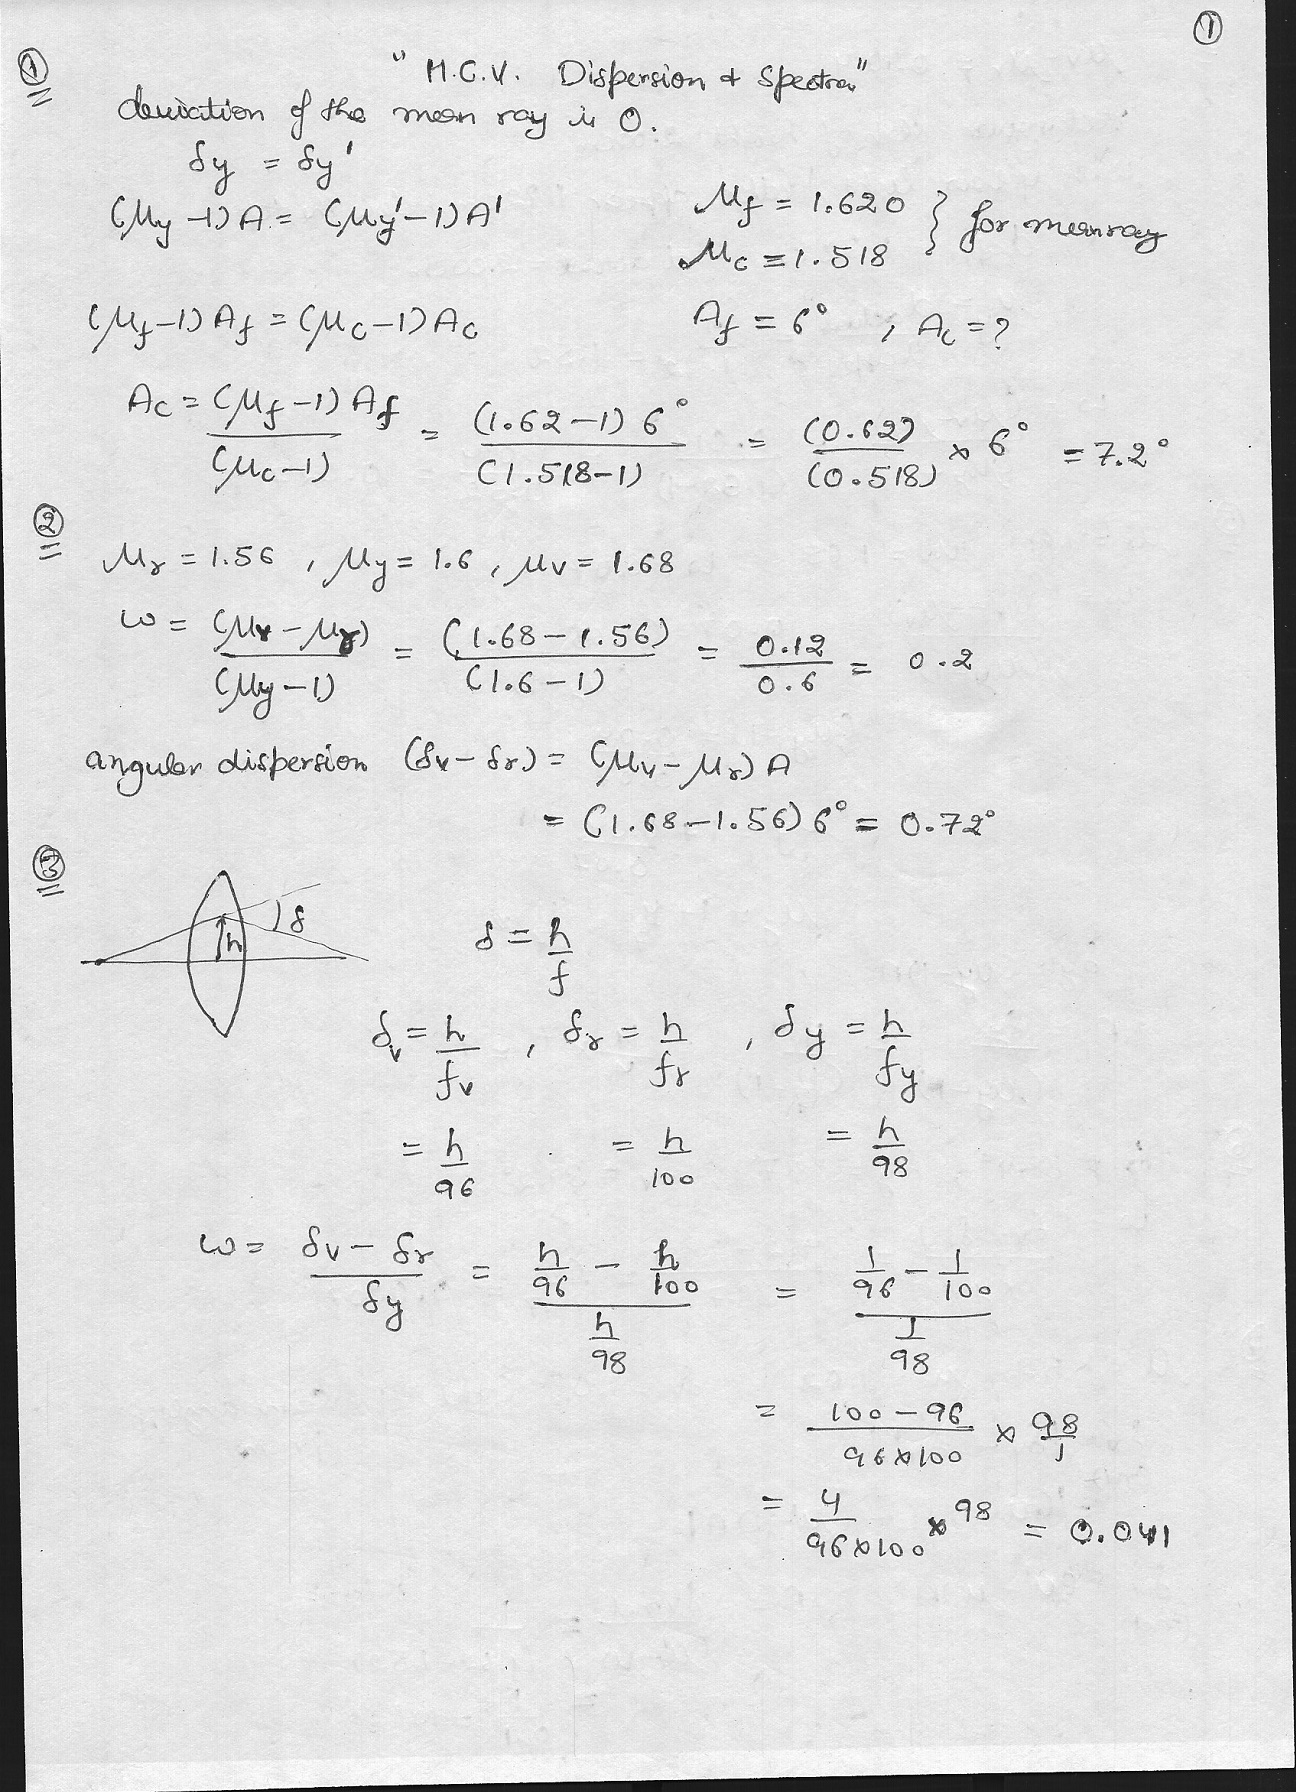 ①
"H.C.V. Dispersion & Spectra"
① deviation of the mean ray is 0.
δy = δy'
(μy - 1) A = (μy' - 1) A'
μf = 1.620
μc = 1.518 } for mean ray
(μf - 1) Af = (μc - 1) Ac
Af = 6° , Ac = ?
Ac = (μf - 1) Af / (μc - 1) = (1.62 - 1) 6° / (1.518 - 1) = (0.62) / (0.518) × 6° = 7.2°
② μr = 1.56 , μy = 1.6 , μv = 1.68
ω = (μv - μr) / (μy - 1) = (1.68 - 1.56) / (1.6 - 1) = 0.12 / 0.6 = 0.2
angular dispersion (δv - δr) = (μv - μr) A
= (1.68 - 1.56) 6° = 0.72°
③
h δ
δ = h / f
δv = h / fv , δr = h / fr , δy = h / fy
= h / 96 = h / 100 = h / 98
ω = δv - δr / δy = h/96 - h/100 / h/98 = 1/96 - 1/100 / 1/98
= 100 - 96 / 96×100 × 98/1
= 4 / 96×100 × 98 = 0.041